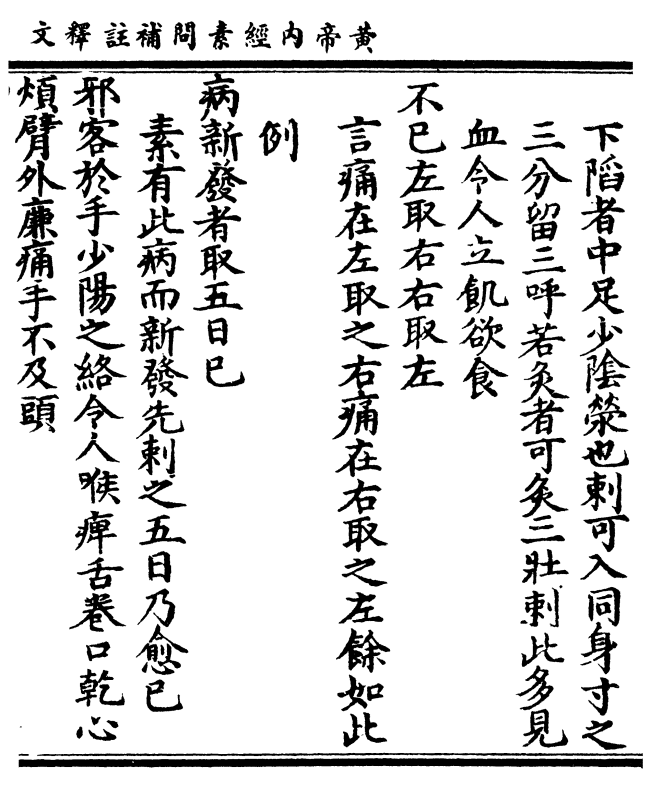 黃帝内經素問補註釋文
下陷者中足少陰滎也刺可入同身寸之
三分留三呼若灸者可灸三壯刺此多見
血令人立飢欲食
不已左取右右取左
言痛在左取之右痛在右取之左餘如此
例
病新發者取五日已
素有此病而新發先刺之五日乃愈已
邪客於手少陽之絡令人喉痺舌卷口乾心
煩臂外廉痛手不及頭